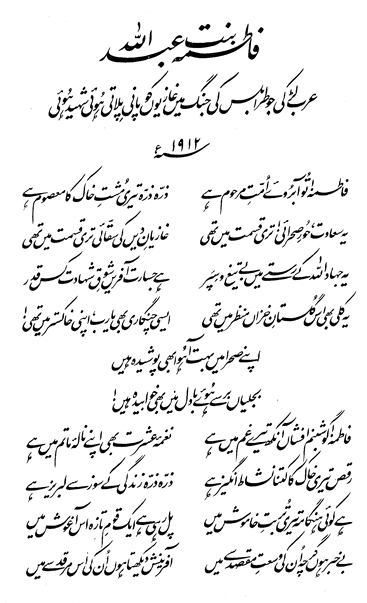 فاطمہ بنت عبد اللہ
عرب لڑکی جو طرابلس کی جنگ میں غازیوں کو پانی پلاتی ہوئی شہید ہوئی
۱۹۱۲ء
فاطمہ! تو آبروئے امتِ مرحوم ہے ذرہ ذرہ تیری مشتِ خاک کا معصوم ہے
یہ سعادت، حورِ صحرائی! تری قسمت میں تھی غازیانِ دیں کی سقائی تری قسمت میں تھی
یہ جہاد اللہ کے رستے میں بے تیغ و سپر ہے جسارت آفریں شوقِ شہادت کس قدر
یہ کلی بھی اس گلستانِ خزاں منظر میں تھی ایسی چنگاری بھی یارب، اپنی خاکستر میں تھی!
اپنے صحرا میں بہت آہو ابھی پوشیدہ ہیں
بجلیاں برسے ہوئے بادل میں بھی خوابیدہ ہیں!
فاطمہ! گو شبنم افشاں آنکھ تیرے غم میں ہے نغمۂ عشرت بھی اپنے نالۂ ماتم میں ہے
رقص تیری خاک کا کتنا نشاط انگیز ہے ذرہ ذرہ زندگی کے سوز سے لبریز ہے
ہے کوئی ہنگامہ تیری تربتِ خاموش میں پل رہی ہے ایک قومِ تازہ اس آغوش میں
بے خبر ہوں گرچہ ان کی وسعتِ مقصد سے میں آفرینش دیکھتا ہوں ان کی اس مرقد سے میں